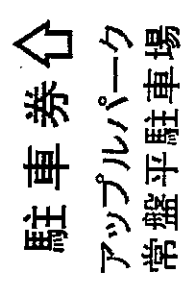 駐車券⇧
アップルパーク
常盤平駐車場